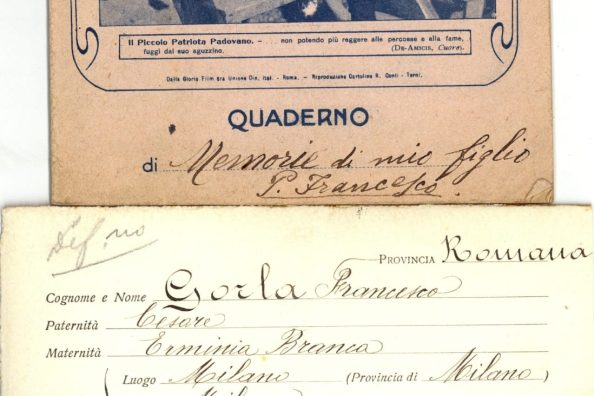 Il Piccolo Patriota Padovano. - .... non potendo più reggere alle percosse e alla fame,
fuggì dal suo aguzzino.
(De-Amicis, Cuore).
Dalla Gloria Film tra Unione Cin. Ital. - Roma. - Riproduzione Cartoline R. Conti - Terni.
QUADERNO
di Memorie di mio figlio
P. Francesco.
Def.no
Provincia Romana
Cognome e Nome Gorla Francesco
Paternità Cesare
Maternità Erminia Branca
( Luogo Milano (Provincia di Milano )